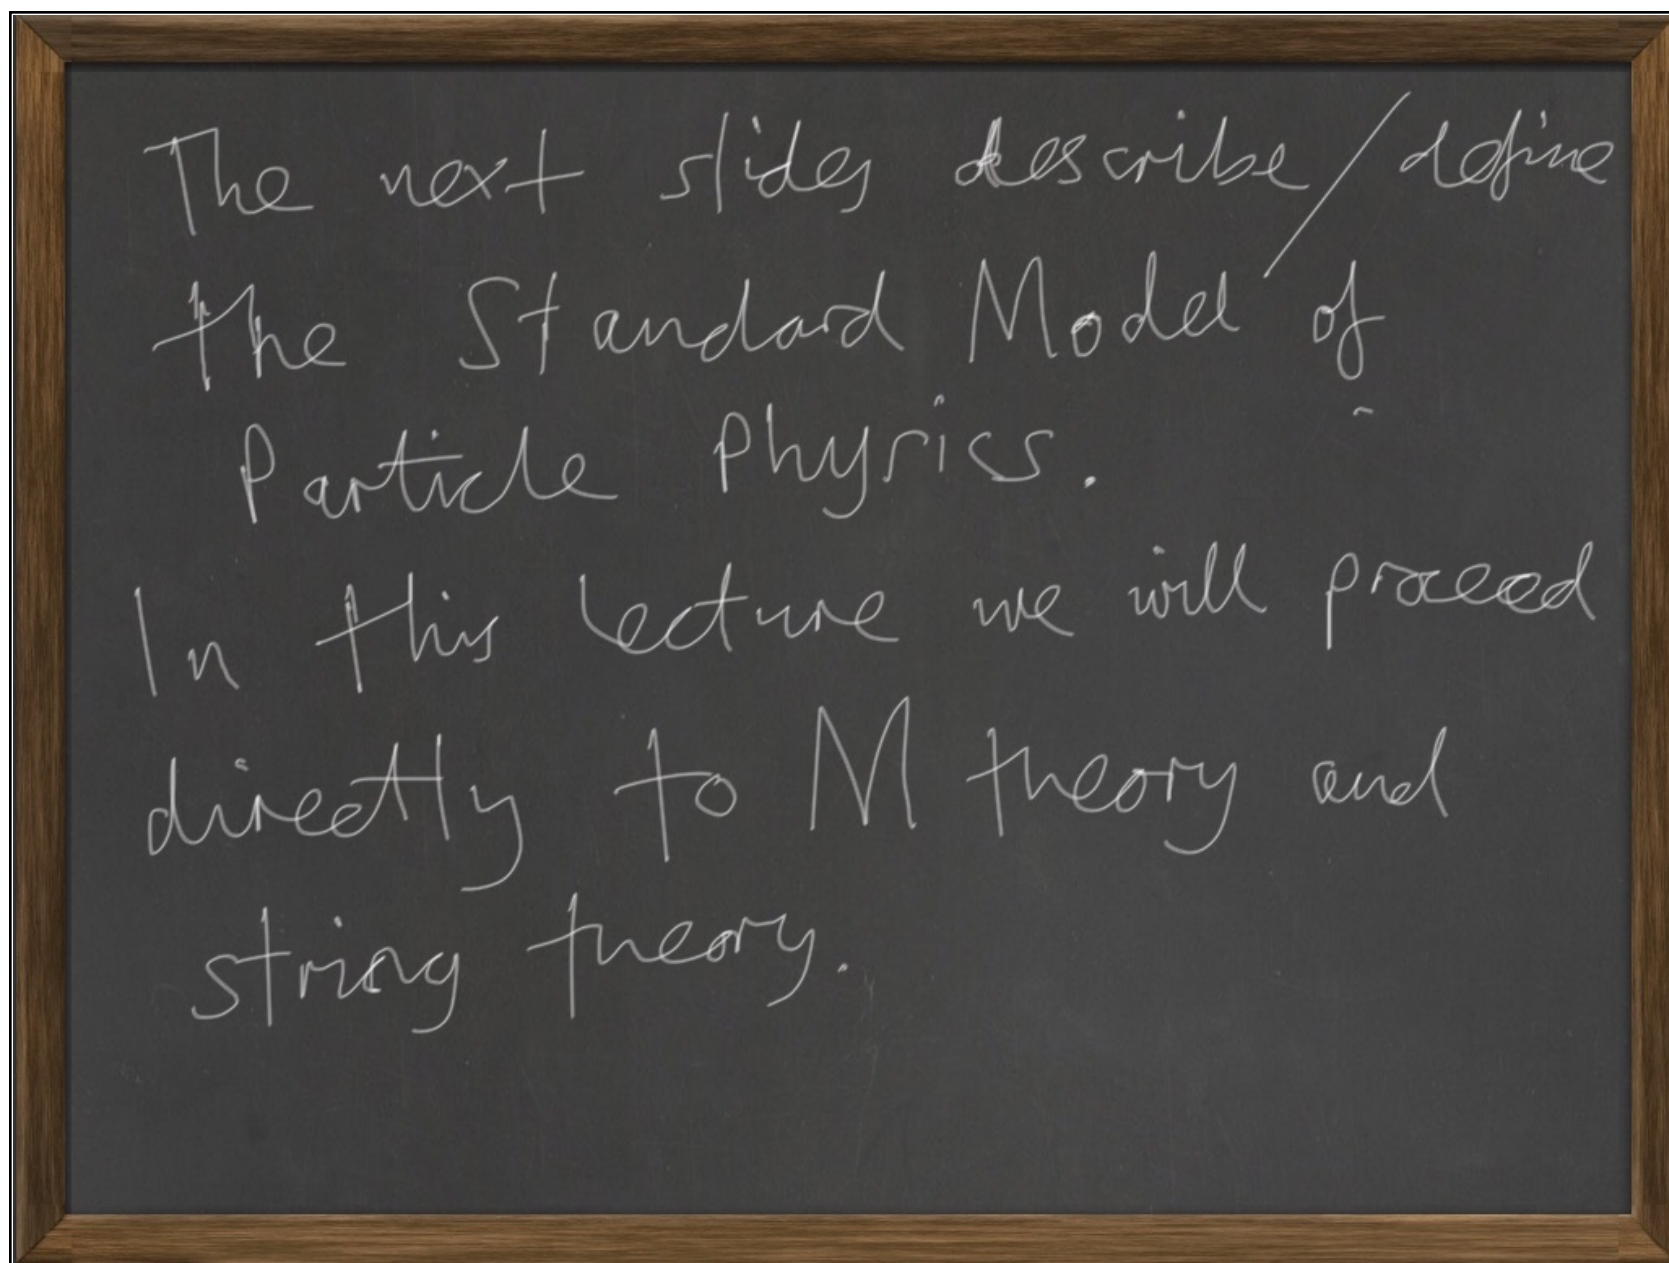 The next slides describe/define
the Standard Model of
Particle Physics.
In this Lecture we will proceed
directly to M theory and
string theory.